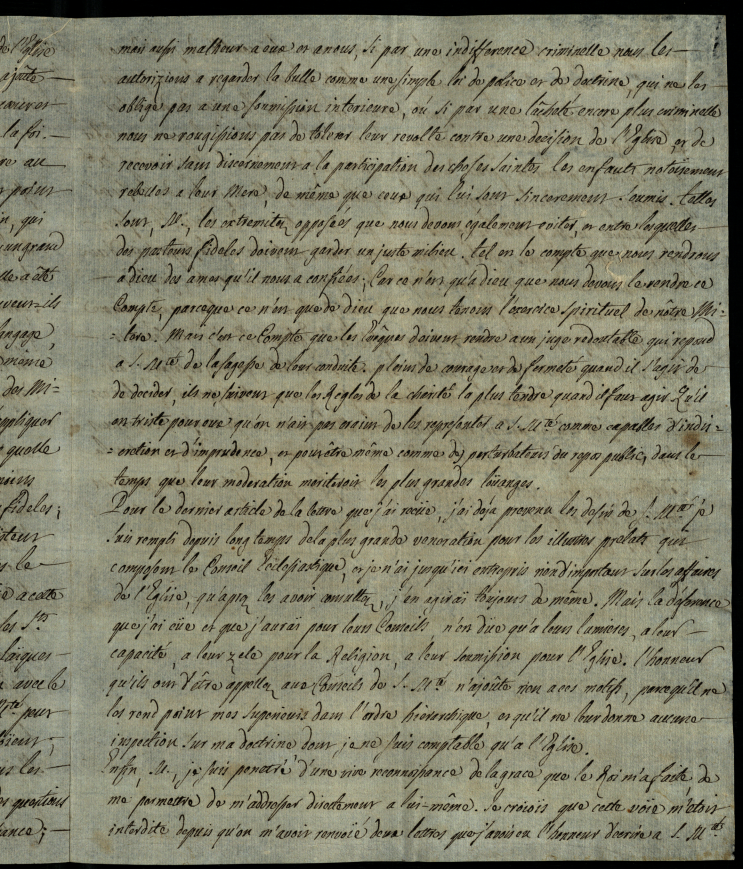 de l'Eglise
ajoute —
oeuvres
la foi. —
re au
r point
in, qui
un grand
lle a été
euvent-ils
langage,
même
des Mi=
appliquer
quelle
moins
fideles;
s le —
ie a cette
les Sts
laiques —
avec le
pour
us les —
questions
ance; —
mais aussi malheur a eux et a nous, si par une indifference criminelle nous les —
autorizions a regarder la bulle comme une simple loi de police et de doctrine, qui ne les —
oblige pas a une soumission interieure, ou si par une lâcheté encore plus criminelle
nous ne rougissions pas de tolerer leur revolte contre une decision de l'Eglise et de
recevoir sans discernement a la participation des choses saintes les enfants notoirement
rebelles a leur Mere, de même que ceux qui lui sont sincerement soumis. telles
sont, M., les extremitez opposées que nous devons également eviter, et entre lesquelles —
des pasteurs fideles doivent garder un juste milieu. tel est le compte que nous rendrons
a dieu des ames qu'il nous a confiées; Car ce n'est qu'a dieu que nous devons le rendre ce
Compte, parceque ce n'est que de dieu que nous tenons l'exercice spirituel de nôtre Mi-
=tere. Mais c'est ce Compte que les Evêques doivent rendre a un juge redoutable qui repond
a S. Mté de la sagesse de leur conduite. pleins de courage et de fermeté quand il s'agit de
de decider, ils ne suivent que les Regles de la charité la plus tendre quand il faut agir. Qu'il
est triste pour eux qu'on n'ait pas moins de les representer a S. Mté comme capables d'indis=
=cretion et d'imprudence, et peut être même comme des perturbateurs du repos public, dans le —
temps que leur moderation meriteroit les plus grandes loüanges.
Pour le dernier article de la lettre que j'ai recüe, j'ai deja prevenu les desirs de S. Mté je
suis rempli depuis long temps de la plus grande veneration pour les illustres prelats qui
composent le Conseil Eclesiastique, et je n'ai jusqu'ici entrepris rien d'important sur les affaires
de l'Eglise, qu'aprez les avoir consultez, j'en agirai toujours de même. Mais la déference
que j'ai eüe et que j'aurai pour leurs Conseils, n'est düe qu'a leurs lumieres, a leur —
capacité, a leur zele pour la Religion, a leur soumission pour l'Eglise. l'honneur
qu'ils ont d'être appellez aux Conseils de S. Mté n'ajoûte rien a ces motifs, parcequ'il ne
les rend point mes superieurs dans l'ordre hierarchique, et qu'il ne leur donne aucune —
inspection sur ma doctrine dont je ne suis comptable qu'a l'Eglise.
Enfin, M., je suis penetré d'une vive reconnoissance de la grace que le Roi m'a faite de
me permettre de m'addresser directement a lui-même. Je croiois que cette voïe m'étoit
interdite depuis qu'on m'avoit renvoïé deux lettres que j'avois eu l'honneur d'écrire a S. Mté